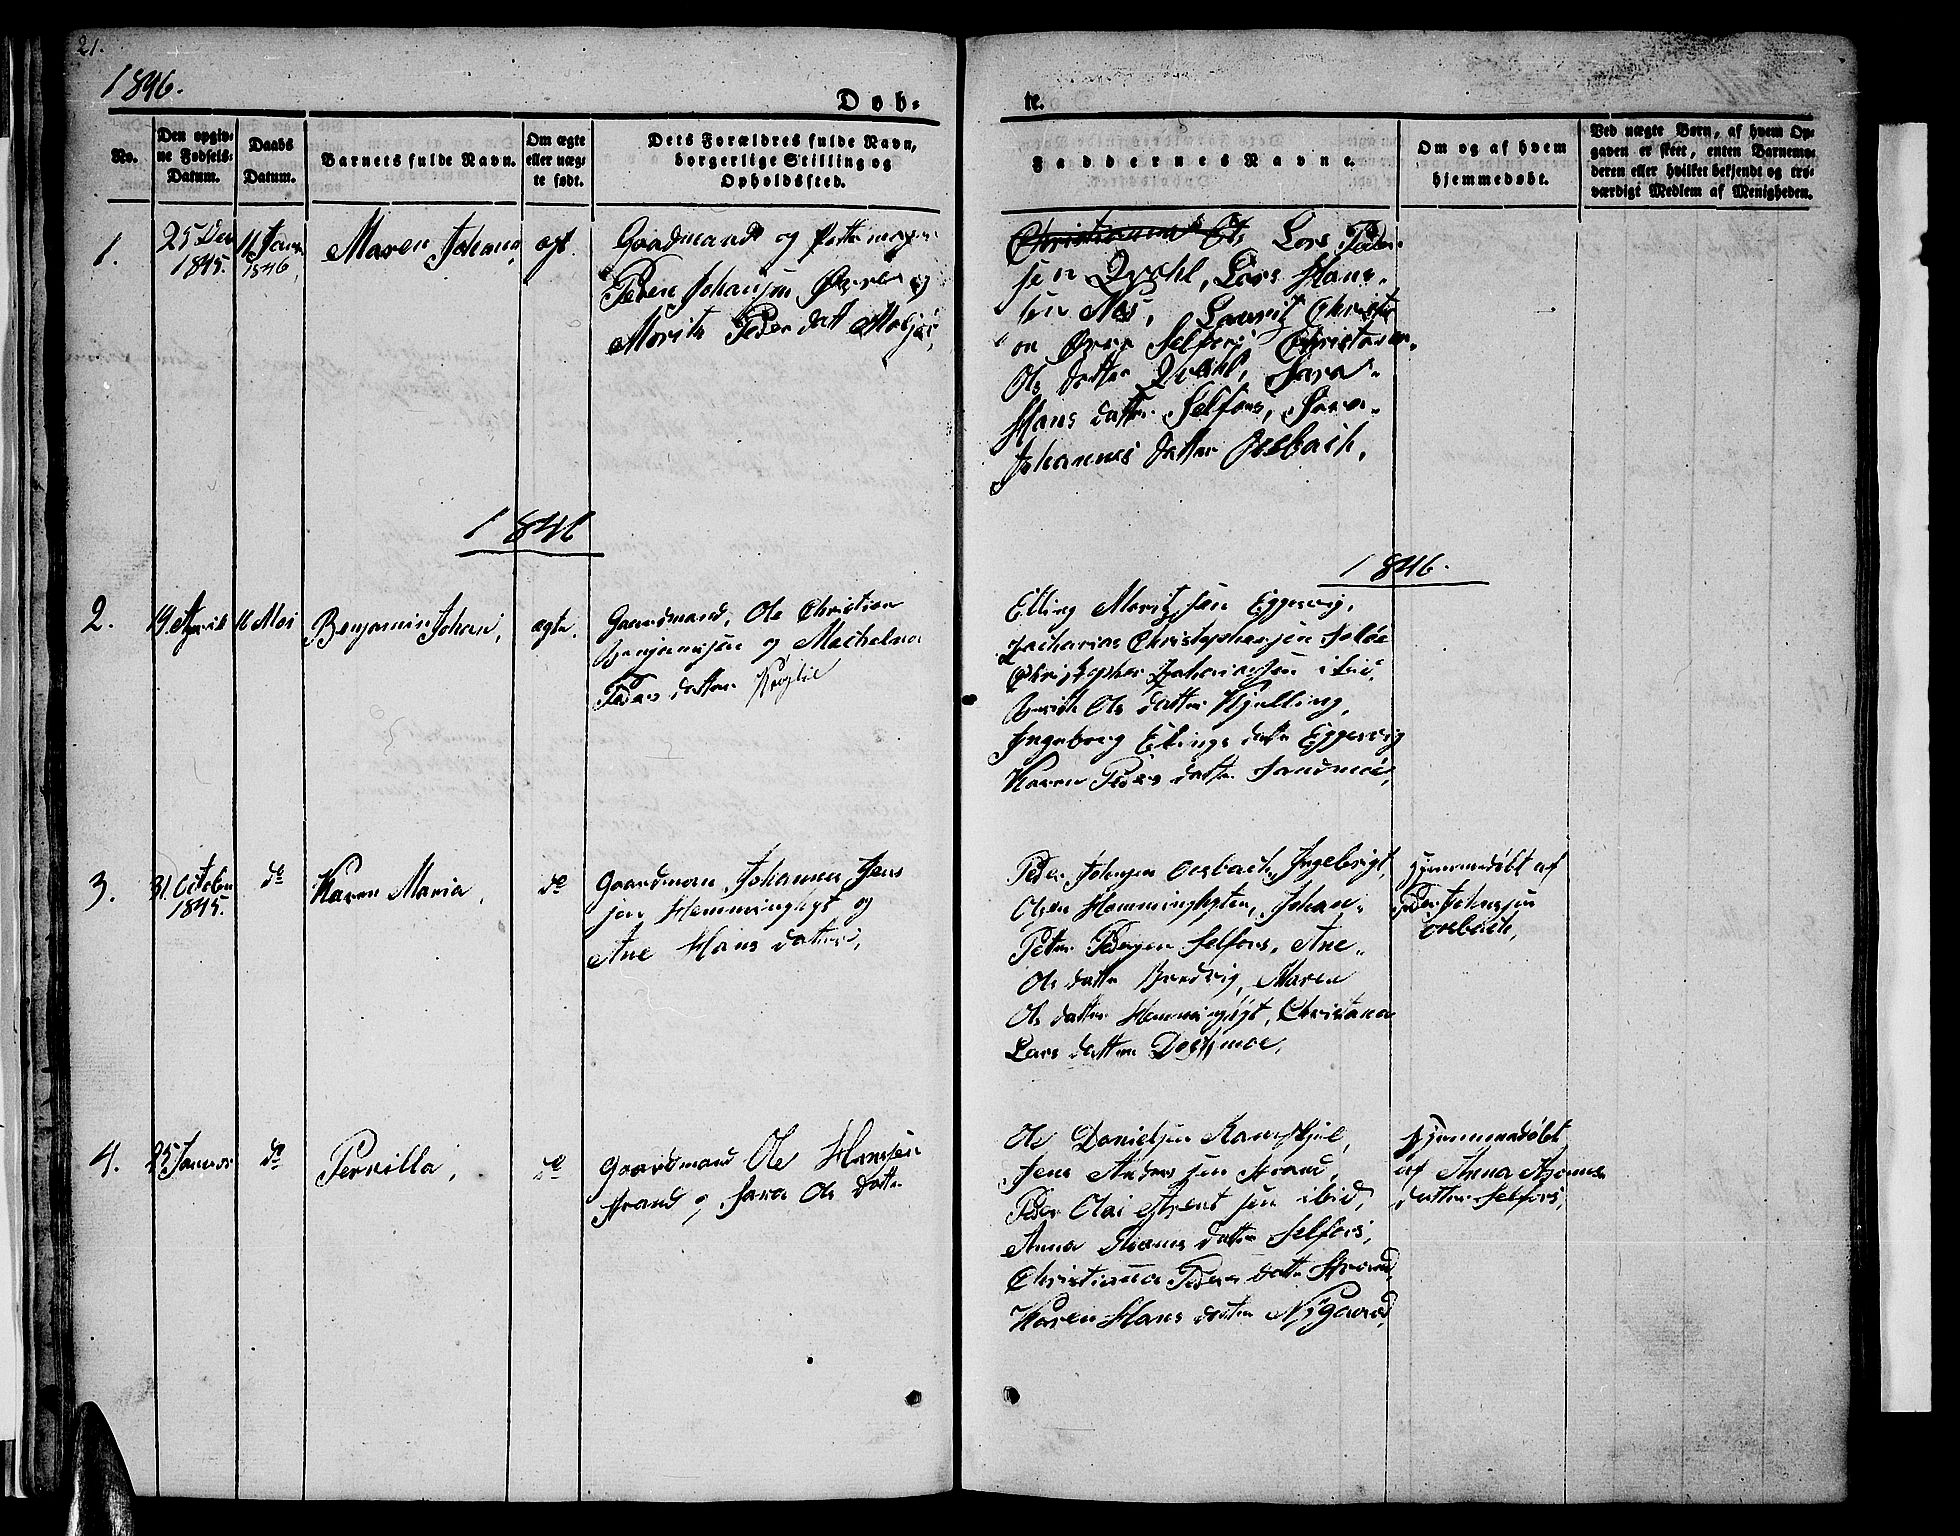 21.
1846.
Døb-
te.
No.
Den opgiv-
ne Fødsels-
Datum.
Daabs
Datum.
Barnets fulde Navn.
Om ægte
eller uæg-
te født.
Dets Forældres fulde Navn,
borgerlige Stilling og
Opholdssted.
Faddernes Navne.
Om og af hvem
hjemmedøbt.
Ved uægte Børn, af hvem Op-
gaven er skeet, enten Barnemo-
deren eller hvilket bekjendt og tro-
værdigt Medlem af Menigheden.
1.
25 Dec
1845.
11 Janr
1846,
Maren Johana,
ægt.
Gaadmand og
Peder Johansen og
Morith Peder datt
Lars Peder-
sen Qvahl, Lars Hans-
sen Næs, Laurit Christi
Selfors Christiana
Ols datter Qvahl, Sara
Hans datter Selfors, Sara
Johannes datter Osbach,
1846
1846.
2.
19 April
11 Mai
Benjamin Johan,
ægte.
Gaardmand, Ole Christian
Benjaminsen og
Peders datter
Elling Moritzsen Eggesvig,
Zacharias Christophersen
Christopher Zachariassen ibid,
Berith Ols datter Kjelling,
Ingeborg Ellings datter Eggesvig
Karen Peders datter Sandmoe,
3.
31 October
1845.
do
Karen Maria,
do
Gaardman, Johannes Jens
sen Hemminghyt og
Ane Hans datter,
Peder Johnsen Osbach, Ingebrigt,
Olsen Hemminghyten, Johan
Peter Pedersen Selfors, Ane
Ols datter Bredvig, Maren
Ols datter Hemminghyt, Christiana
Lars datter
Hjemmedøbt af
Peder Johnsen
Osbach,
4.
25 Januar
do
Pernilla,
do
Gaardmand Ole Hanssen
Strand, Sara Ols datter
Ole Danielsen
Jens Anders sen Strand,
Peder Olai sen ibid,
Anna datter Selfors,
Christianna Peders datter Strand,
Karen Hans datter Nygaard,
Hjemmedøbt
af Anna
datter Selfors,